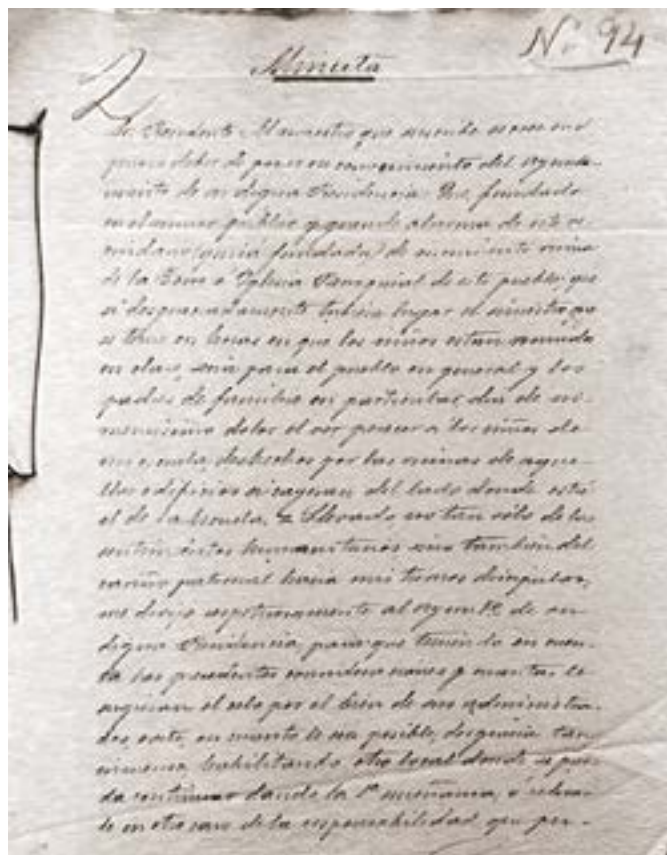 Nº 94
2
Minuta
Sr. Presidente. El maestro que suscribe se cree en el
deber de poner en conocimiento del Ayunta-
miento de su digna Presidencia: Que, fundado
en el rumor público y grande alarma de este ve-
cindario de ruina
de la Torre é Iglesia Parroquial de este pueblo, que
si desgraciadamente tubiera lugar el siniestro que
se teme en horas en que los niños estan reunidos
en clase, sería para el pueblo en general y los
padres de familia en particular dia de in-
dolor el ver perecer a los niños de
escuela, deshechos por las ruinas de aque-
llos edificios si cayeran del lado donde está
el de la Escuela. Llevado no tan sólo de los
sentimientos humanitarios sino también del
cariño paternal hacia mis tiernos discípulos,
me dirijo respetuosamente al Ayunto de su
digna Presidencia, para que teniendo en cuen-
ta las precedentes y cuantas le
sugieran el celo por el bien de sus administra-
dos, evite, en cuanto le sea posible, desgracia tan
inmensa habilitando otro local donde se pue-
da continuar dando la 1ª enseñanza, ó
en otro caso de la responsabilidad que